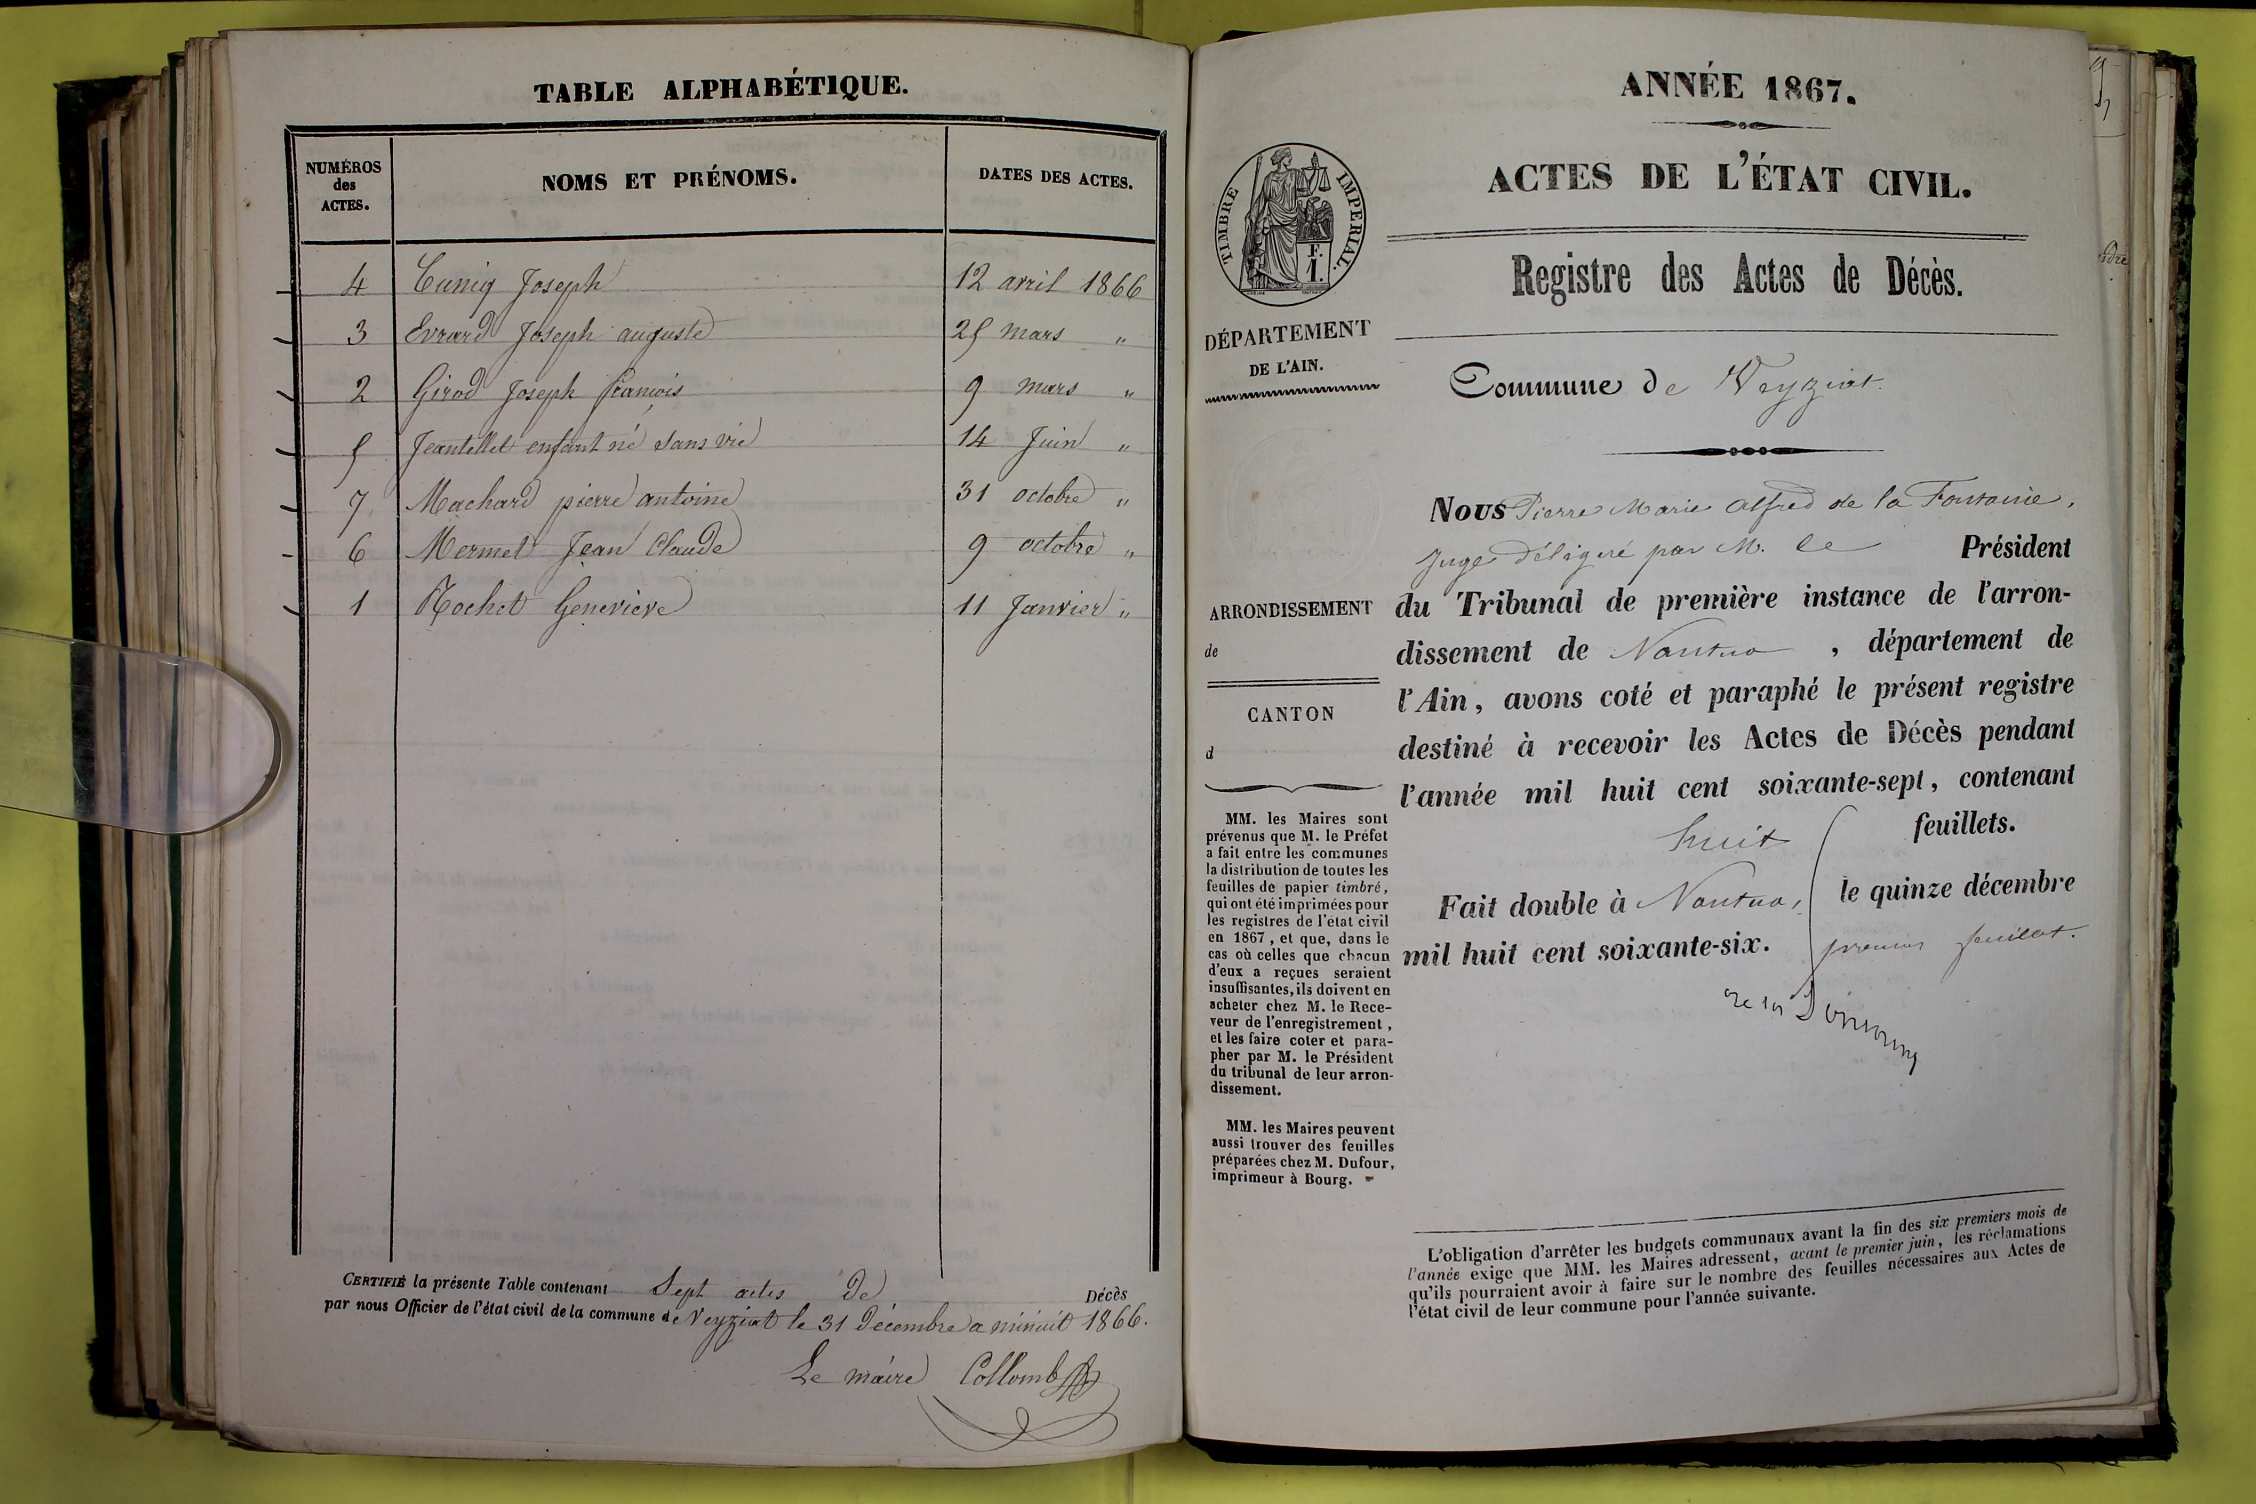 TABLE ALPHABÉTIQUE.
NUMÉROS
des
ACTES.
NOMS ET PRÉNOMS.
DATES DES ACTES.
4 Cuniq Joseph 12 avril 1866
3 Evrard Joseph auguste 25 mars "
2 Girod Joseph francois 9 mars "
5 Jeantellet enfant né sans vie 14 Juin "
7 Machard pierre antoine 31 octobre "
6 Mermet Jean Claude 9 octobre "
1 Rochet Geneviève 11 Janvier "
CERTIFIÉ la présente Table contenant Sept actes de Décès
par nous Officier de l'état civil de la commune de Veyziat le 31 Décembre a minuit 1866.
Le maire Collomb
ANNÉE 1867.
ACTES DE L'ÉTAT CIVIL.
TIMBRE IMPERIAL.
E.
I.
Registre des Actes de Décès.
DÉPARTEMENT
DE L'AIN.
Commune de Veyziat.
ARRONDISSEMENT
de
CANTON
d
MM. les Maires sont
prévenus que M. le Préfet
a fait entre les communes
la distribution de toutes les
feuilles de papier timbré,
qui ont été imprimées pour
les registres de l'état civil
en 1867, et que, dans le
cas où celles que chacun
d'eux a reçues seraient
insuffisantes, ils doivent en
acheter chez M. le Rece-
veur de l'enregistrement,
et les faire coter et para-
pher par M. le Président
du tribunal de leur arron-
dissement.
MM. les Maires peuvent
aussi trouver des feuilles
préparées chez M. Dufour,
imprimeur à Bourg.
NOUS Pierre Marie Alfred de la Fontaine,
Juge délégué par M. le Président
du Tribunal de première instance de l'arron-
dissement de Nantua, département de
l'Ain, avons coté et paraphé le présent registre
destiné à recevoir les Actes de Décès pendant
l'année mil huit cent soixante-sept, contenant
huit feuillets.
Fait double à Nantua, le quinze décembre
mil huit cent soixante-six.
premier feuillet.
L'obligation d'arrêter les budgets communaux avant la fin des six premiers mois de
l'année exige que MM. les Maires adressent, avant le premier juin, les réclamations
qu'ils pourraient avoir à faire sur le nombre des feuilles nécessaires aux Actes de
l'état civil de leur commune pour l'année suivante.